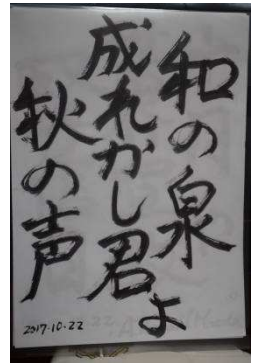 和の泉
成れかし君よ
秋の声
2017.10.22